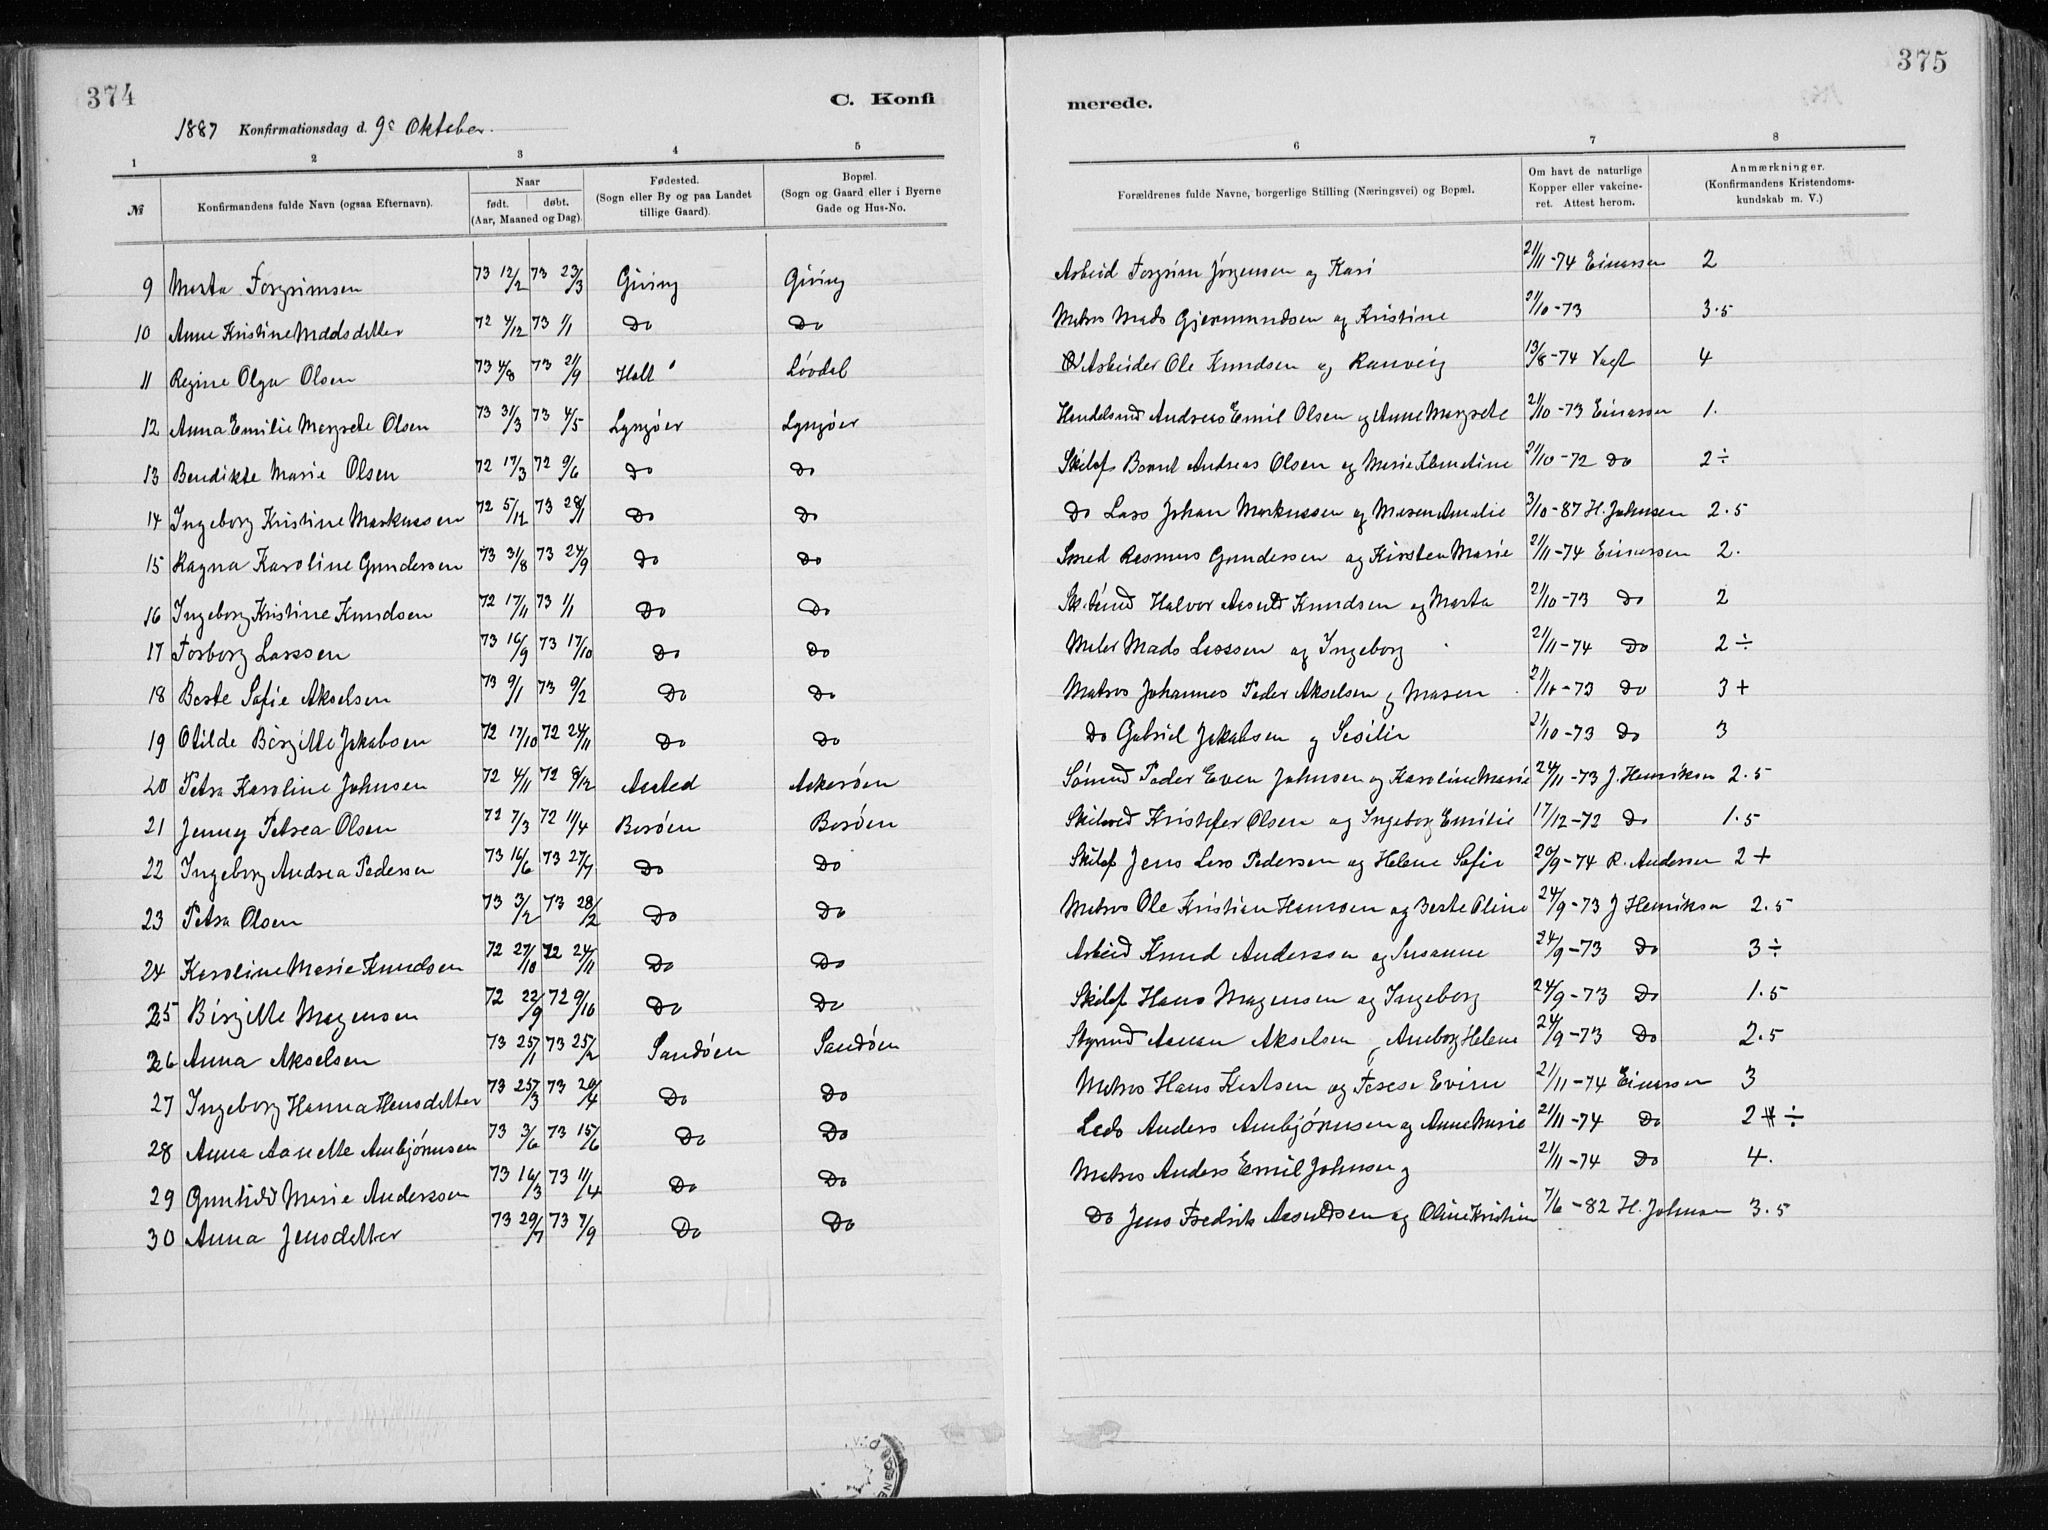 374
C. Konfi
1887 Konfirmationsdag d. 9e Oktober.
1 2 3 4 5
№ Konfirmandens fulde Navn (ogsaa Efternavn). Naar født. døbt. (Aar, Maaned og Dag). Fødested. (Sogn eller By og paa Landet tillige Gaard). Bopæl. (Sogn og Gaard eller i Byerne Gade og Hus-No.
9 Marta Torgrimsen 73 12/2 73 23/3 Giving Giving
10 Anne Kristine Madsdatter 72 4/12 73 1/1 Do Do
11 Regine Olga Olsen 73 4/8 73 21/9 Holt Lövdal
12 Anna Emilie Margrete Olsen 73 31/3 73 4/5 Lyngöer Lyngöer
13 Bendikte Marie Olsen 72 17/3 72 9/6 Do Do
14 Ingeborg Kristine Markussen 72 5/12 73 28/1 Do Do
15 Ragna Karoline Gundersen 73 31/8 73 24/9 Do Do
16 Ingeborg Kristine Knudsen 72 17/11 73 1/1 Do Do
17 Torborg Larssen 73 16/9 73 17/10 Do Do
18 Berte Sofie Akselsen 73 9/1 73 9/2 Do Do
19 Otilde Birgitte Jakobsen 72 17/10 72 24/11 Do Do
20 Petra Karoline Johnsen 72 4/11 72 8/12 Askeröen
21 Jenny Petrea Olsen 72 7/3 72 11/4 Boröen Boröen
22 Ingeborg Andrea Pedersen 73 16/6 73 27/7 Do Do
23 Petra Olsen 73 3/2 73 28/2 Do Do
24 Karoline Marie Knudsen 72 27/10 72 24/11 Do Do
25 Birgitte Magensen 72 22/9 72 9/10 Do Do
26 Anna Akselsen 73 25/1 73 25/2 Sandöen Sandöen
27 Ingeborg Hanna Hansdatter 73 25/3 73 20/4 Do Do
28 Anna Aanette Ambjörnsen 73 3/6 73 15/6 Do Do
29 Gunhild Marie Anderssen 73 16/3 73 11/4 Do Do
30 Anna Jensdatter 73 29/7 73 7/9 Do Do
375
merede.
6 7 8
Forældrenes fulde Navne, borgerlige Stilling (Næringsvei) og Bopæl. Om havt de naturlige Kopper eller vakcineret. Attest herom. Anmærkninger. (Konfirmandens Kristendomskundskab m. V.)
Arbeid Torgrim Jörgensen og Kari 21/11-74 Einersen 2
Matros Mads Gjermundsen og Kristine 21/10-73 3.5
Arbeider Ole Knudsen og Ranveig 13/8-74 4
Handelsmd Andreas Emil Olsen og Anne Margrete 21/10-73 Einersen 1.
Skibsf Andreas Olsen og Marie 21/10-72 Do 2÷
Do Lars Johan Markussen og Maren Amalie 3/10-87 H. Johnsen 2.5
Smed Rasmus Gundersen og Kirsten Marie 21/11-74 Einersen 2.
Halvor Knudsen og Marta 21/10-73 Do 2
Maler Mads Larssen og Ingeborg 21/11-74 Do 2÷
Matros Johannes Peder Akselsen og Maren 21/10-73 Do 3+
Do Gabriel Jakobsen og Sesilie 21/10-73 Do 3
Sömnd Peder Even Johnsen og Karoline Marie 24/11-73 J. Henriksen 2.5
Kristofer Olsen og Ingeborg Emilie 17/12-72 Do 1.5
Skibsf Jens Lars Pedersen og Helene Sofie 20/9-74 R. Andersen 2+
Matros Ole Kristian Hanssen og Berte Oline 24/9-73 J Henriksen 2.5
Arbeid Knud Anderssen og Susanne 24/9-73 Do 3÷
Skibsf Hans Magensen og Ingeborg 24/9-73 Do 1.5
Styrmd Aanon Akselsen Helene 24/9-73 Do 2.5
Matros Hans og 21/11-74 Einersen 3
Lods Anders Ambjörnsen og Anne Marie 21/11-74 Do 2 ÷
Matros Anders Emil Johnsen og 21/11-74 Do 4.
Do Jens Fredrik og Oline Kristine 7/6-82 H. Johnsen 3.5